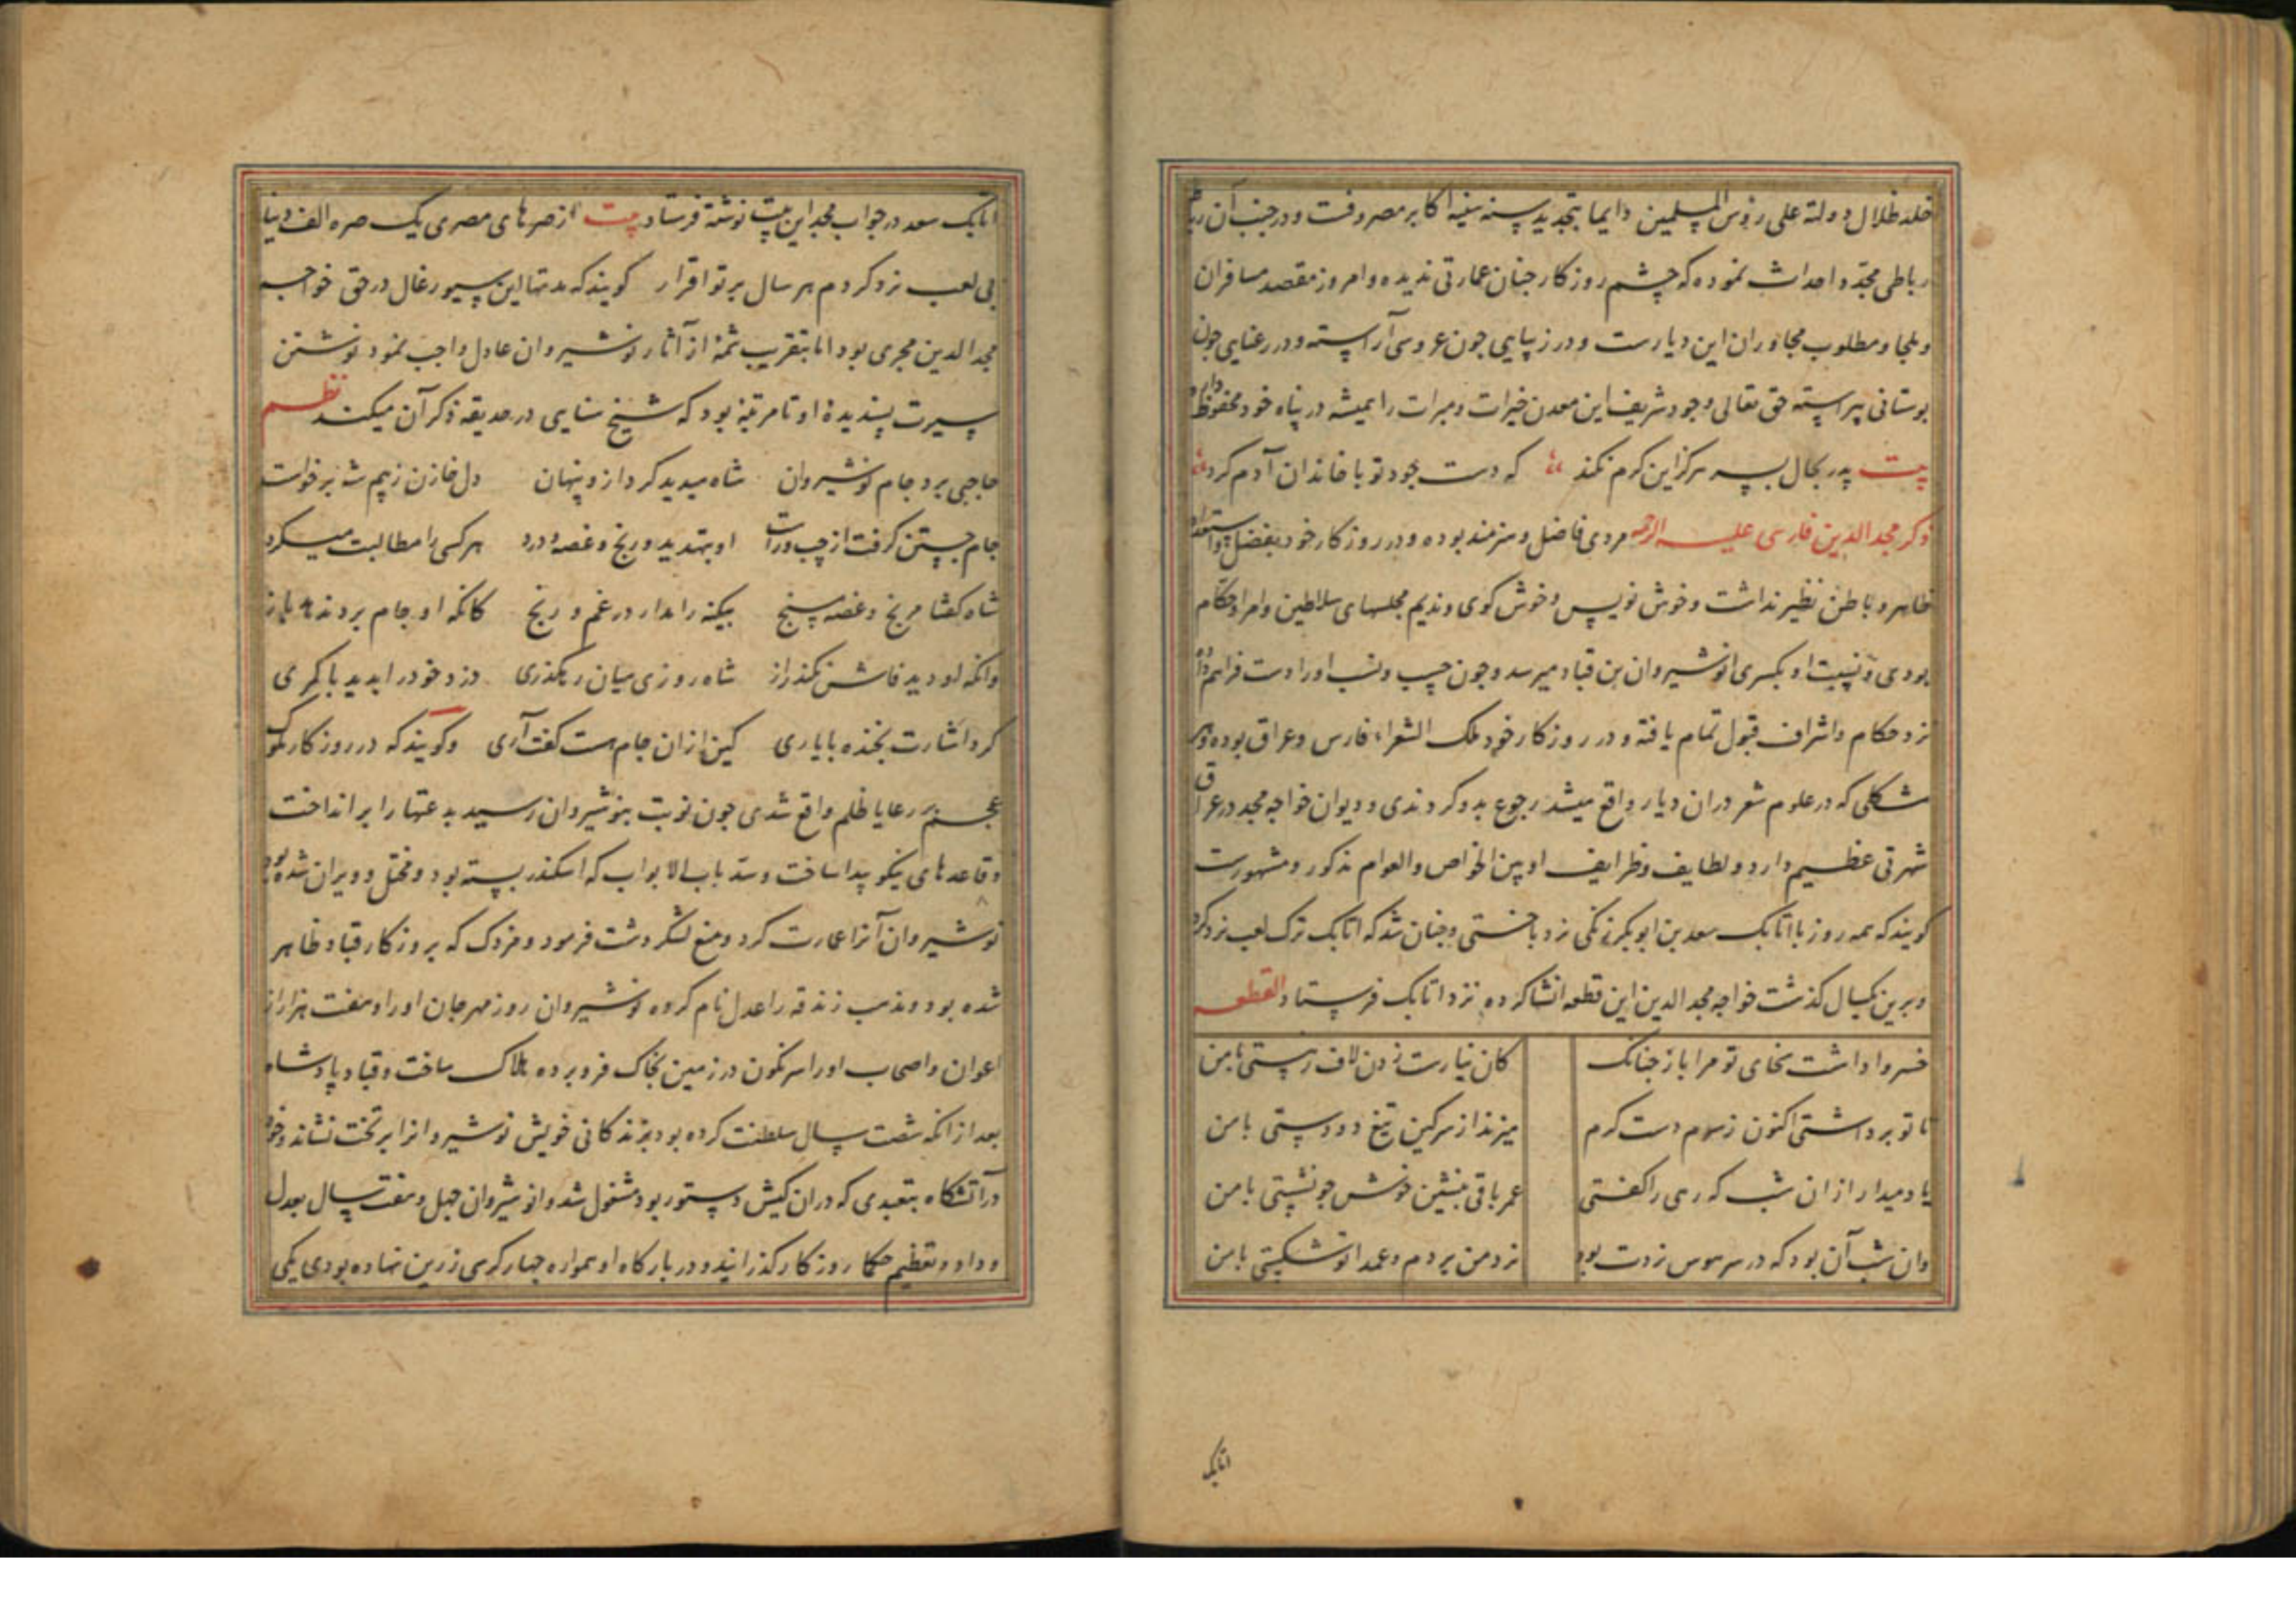 خلد ظلال دولته علی رؤس المسلمین دایما بتجدید سنه سنیه اکابر مصروفست و در جنب آن رباط
رباطی مجدد احداث نموده که چشم روزکار جنان عمارتی ندیده و امروز مقصد مسافران
و ملجا و مطلوب مجاوران این دیارست و در زیبایی جون عروسی آراسته و در رعنایی جون
بوستانی پیراسته حق تعالی وجود شریف این معدن خیرات و مبرات را همیشه در پناه خود محفوظ دارد
بیت پدر بجال پسر هرکز این کرم نکند که دست جود تو با خاندان آدم کرد
ذکر مجد الدین فارسی علیه الرحمه مردی فاضل و هنرمند بوده و در روزکار خود بفضل و استعداد
ظاهر و باطن نظیر نداشت و خوش نویس و خوش کوی و ندیم مجلسهای سلاطین و امرا و حکام
بودی و نسبت او بکسری انوشیروان بن قباد میرسد و جون حسب و نسب اورا دست فراهم داد
نزد حکام و اشراف قبول تمام یافته و در روزکار خود ملک الشعراء فارس و عراق بوده و هر
مشکلی که در علوم شعر دران دیار واقع میشد رجوع بدو کردندی و دیوان خواجه مجد در عراق
شهرتی عظیم دارد و لطایف و ظرایف او بین الخواص و العوام مذکور و مشهورست
کویند که همه روز با اتابک سعد بن ابوبکر زنکی نرد باختی و جنان شد که اتابک ترک لعب نرد کرد
و برین یکسال کذشت خواجه مجد الدین این قطعه انشا کرده نزد اتابک فرستاد القطعه
خسروا داشت سخای تو مرا باز جنانک کان نیارست زدن لاف ز هستی با من
تا تو برداشتی اکنون ز سرم دست کرم میزند از سر کین تیغ دو دستی با من
یاد میدار ازان شب که رهی را کفتی عمر باقی بنشین خوش جو نشستی با من
وان شب آن بود که در سر هوس نردت بود نرد من بردم و عمدا تو شکستی با من
اتابک
اتابک سعد در جواب مجد این بیت نوشته فرستاد بیت از صرهای مصری یک صره الف دینار
بی لعب نرد کردم هر سال بر تو اقرار کویند که مدتها این سیورغال در حق خواجه
مجد الدین مجری بود اما بتقریب شمهٔ از آثار نوشیروان عادل واجب نمود نوشتن
سیرت پسندیدهٔ او تا مرتبهٔ بود که شیخ سنایی در حدیقه ذکر آن میکند نظم
حاجبی برد جام نوشیروان شاه میدید کرد ازو پنهان دل خازن ز بیم شه برخواست
جام جستن کرفت از چپ و راست او بتهدید و رنج و غصه و درد هر کسی را مطالبت میکرد
شاه کفتا مرنج و غصه مسنج بیکنه را مدار در غم و رنج کانکه او جام برد ندهد باز
وانکه او دید فاش نکند راز شاه روزی میان رهکذری دزد خود را بدید با کمری
کرد اشارت بخنده با یاری کین ازان جام هست کفت آری و کویند که در روزکار ملوک
عجم بر رعایا ظلم واقع شدی جون نوبت بنوشیروان رسید بدعتها را بر انداخت
و قاعدهای نیکو پیدا ساخت و سد باب الابواب که اسکندر بسته بود و مختل و ویران شده بود
نوشیروان آنرا عمارت کرد و منع لشکر دشت فرمود و مزدک که بروزکار قباد ظاهر
شده بود و مذهب زندقه را عدل نام کرده نوشیروان روز مهرجان اورا و هفت هزار از
اعوان و اصحاب اورا سرنکون در زمین بخاک فرو برده هلاک ساخت و قباد پادشاه
بعد از انکه شصت سال سلطنت کرده بود بزندکانی خویش نوشیروانرا بر تخت نشاند و خود
در آتشکاه بتعبدی که دران کیش دستور بود مشغول شد و انوشیروان چهل و هفت سال بعدل
و داد و تعظیم حکما روزکار کذرانید و در بارکاه او همواره جهار کرسی زرین نهاده بودی یکی